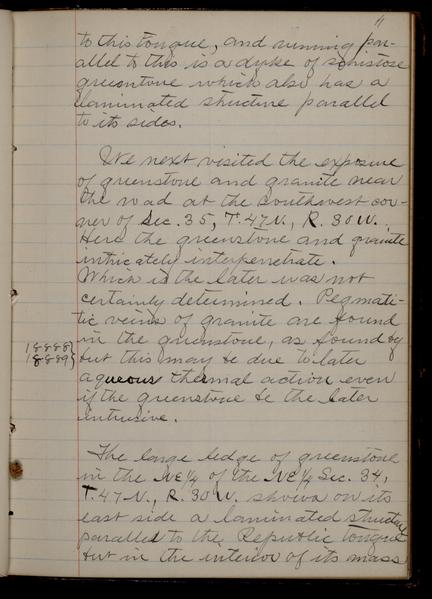 11
to this tongue, and running par-
allel to this is a dyke of schistose
greenstone which also has a
laminated structure parallel
to its sides.
We next visited the exposure
of greenstone and granite near
the road at the southwest cor-
ner of Sec. 35, T. 47 N., R. 30 W.
Here the greenstone and granite
intricately interpenetrate.
Which is the later was not
certainly determined. Pegmati-
tic veins of granite are found
18888 in the greenstone, as found by
18889} but this may be due to later
aqueous thermal action even
if the greenstone be the later
intrusive.
The large ledge of greenstone
in the NE 1/4 of the NE 1/4 Sec. 34,
T. 47 N., R. 30 W. shows on its
east side a laminated structure
parallel to the Republic tongue
but in the interior of its mass